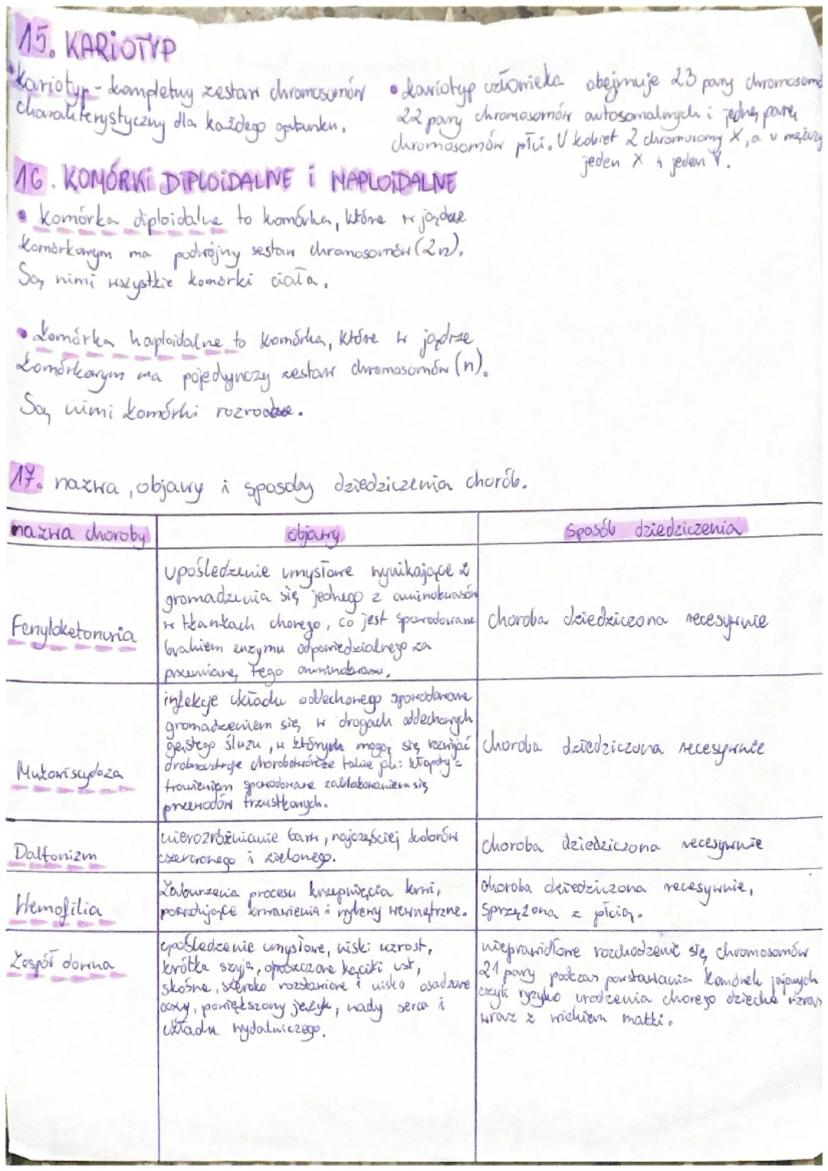 15. KARIOTYP
• Kariotyp - kompletny zestaw chromosomów
charakterystyczny dla każdego gatunku.
• kariotyp człowieka obejmuje 23 pary chromosomó
22 pary chromosomów autosomalnych i jedną parę
chromosomów płci. U kobiet 2 chromosomy X, a u mężczyz
jeden X i jeden Y.
16. KOMÓRKI DIPLOIDALNE i HAPLOIDALNE
• komórka diploidalne to komórka, które w jądrze
komórkowym ma podwójny zestaw chromosomów (2n).
Są nimi wszystkie komórki ciała.
• komórka haploidalne to komórka, które w jądrze
komórkowym ma pojedynczy zestaw chromosomów (n).
Są nimi komórki rozrodcze.
17. nazwa, objawy i sposoby dziedziczenia chorób.
nazwa choroby objawy sposób dziedziczenia
Fenyloketonuria
upośledzenie umysłowe wynikające z
gromadzenia się jednego z aminokwasów
w tkankach chorego, co jest spowodowane
brakiem enzymu odpowiedzialnego za
przemianę tego aminokwasu.
choroba dziedziczona recesywnie
Mukowiscydoza
infekcje układu oddechowego spowodowane
gromadzeniem się w drogach oddechowych
gęstego śluzu, w których mogą się rozwijać
drobnoustroje chorobotwórcze takie jak: kłopoty z
trawieniem spowodowane zablokowaniem się
przewodów trzustkowych.
choroba dziedziczona recesywnie
Daltonizm
nierozróżnianie barw, najczęściej kolorów
czerwonego i zielonego.
choroba dziedziczona recesywnie
Hemofilia
Zaburzenia procesu krzepnięcia krwi,
powodujące krwawienia i wylewy wewnętrzne.
choroba dziedziczona recesywnie,
sprzężona z płcią.
Zespół downa
upośledzenie umysłowe, niski wzrost,
krótka szyja, opuszczone kąciki ust,
skośne, szeroko rozstawione i nisko osadzone
oczy, powiększony język, wady serca i
układu wydalniczego.
nieprawidłowe rozchodzenie się chromosomów
21 pary podczas powstawania komórek jajowych
czyli ryzyko urodzenia chorego dziecka wzras
wraz z wiekiem matki.